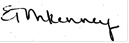 E McKenney